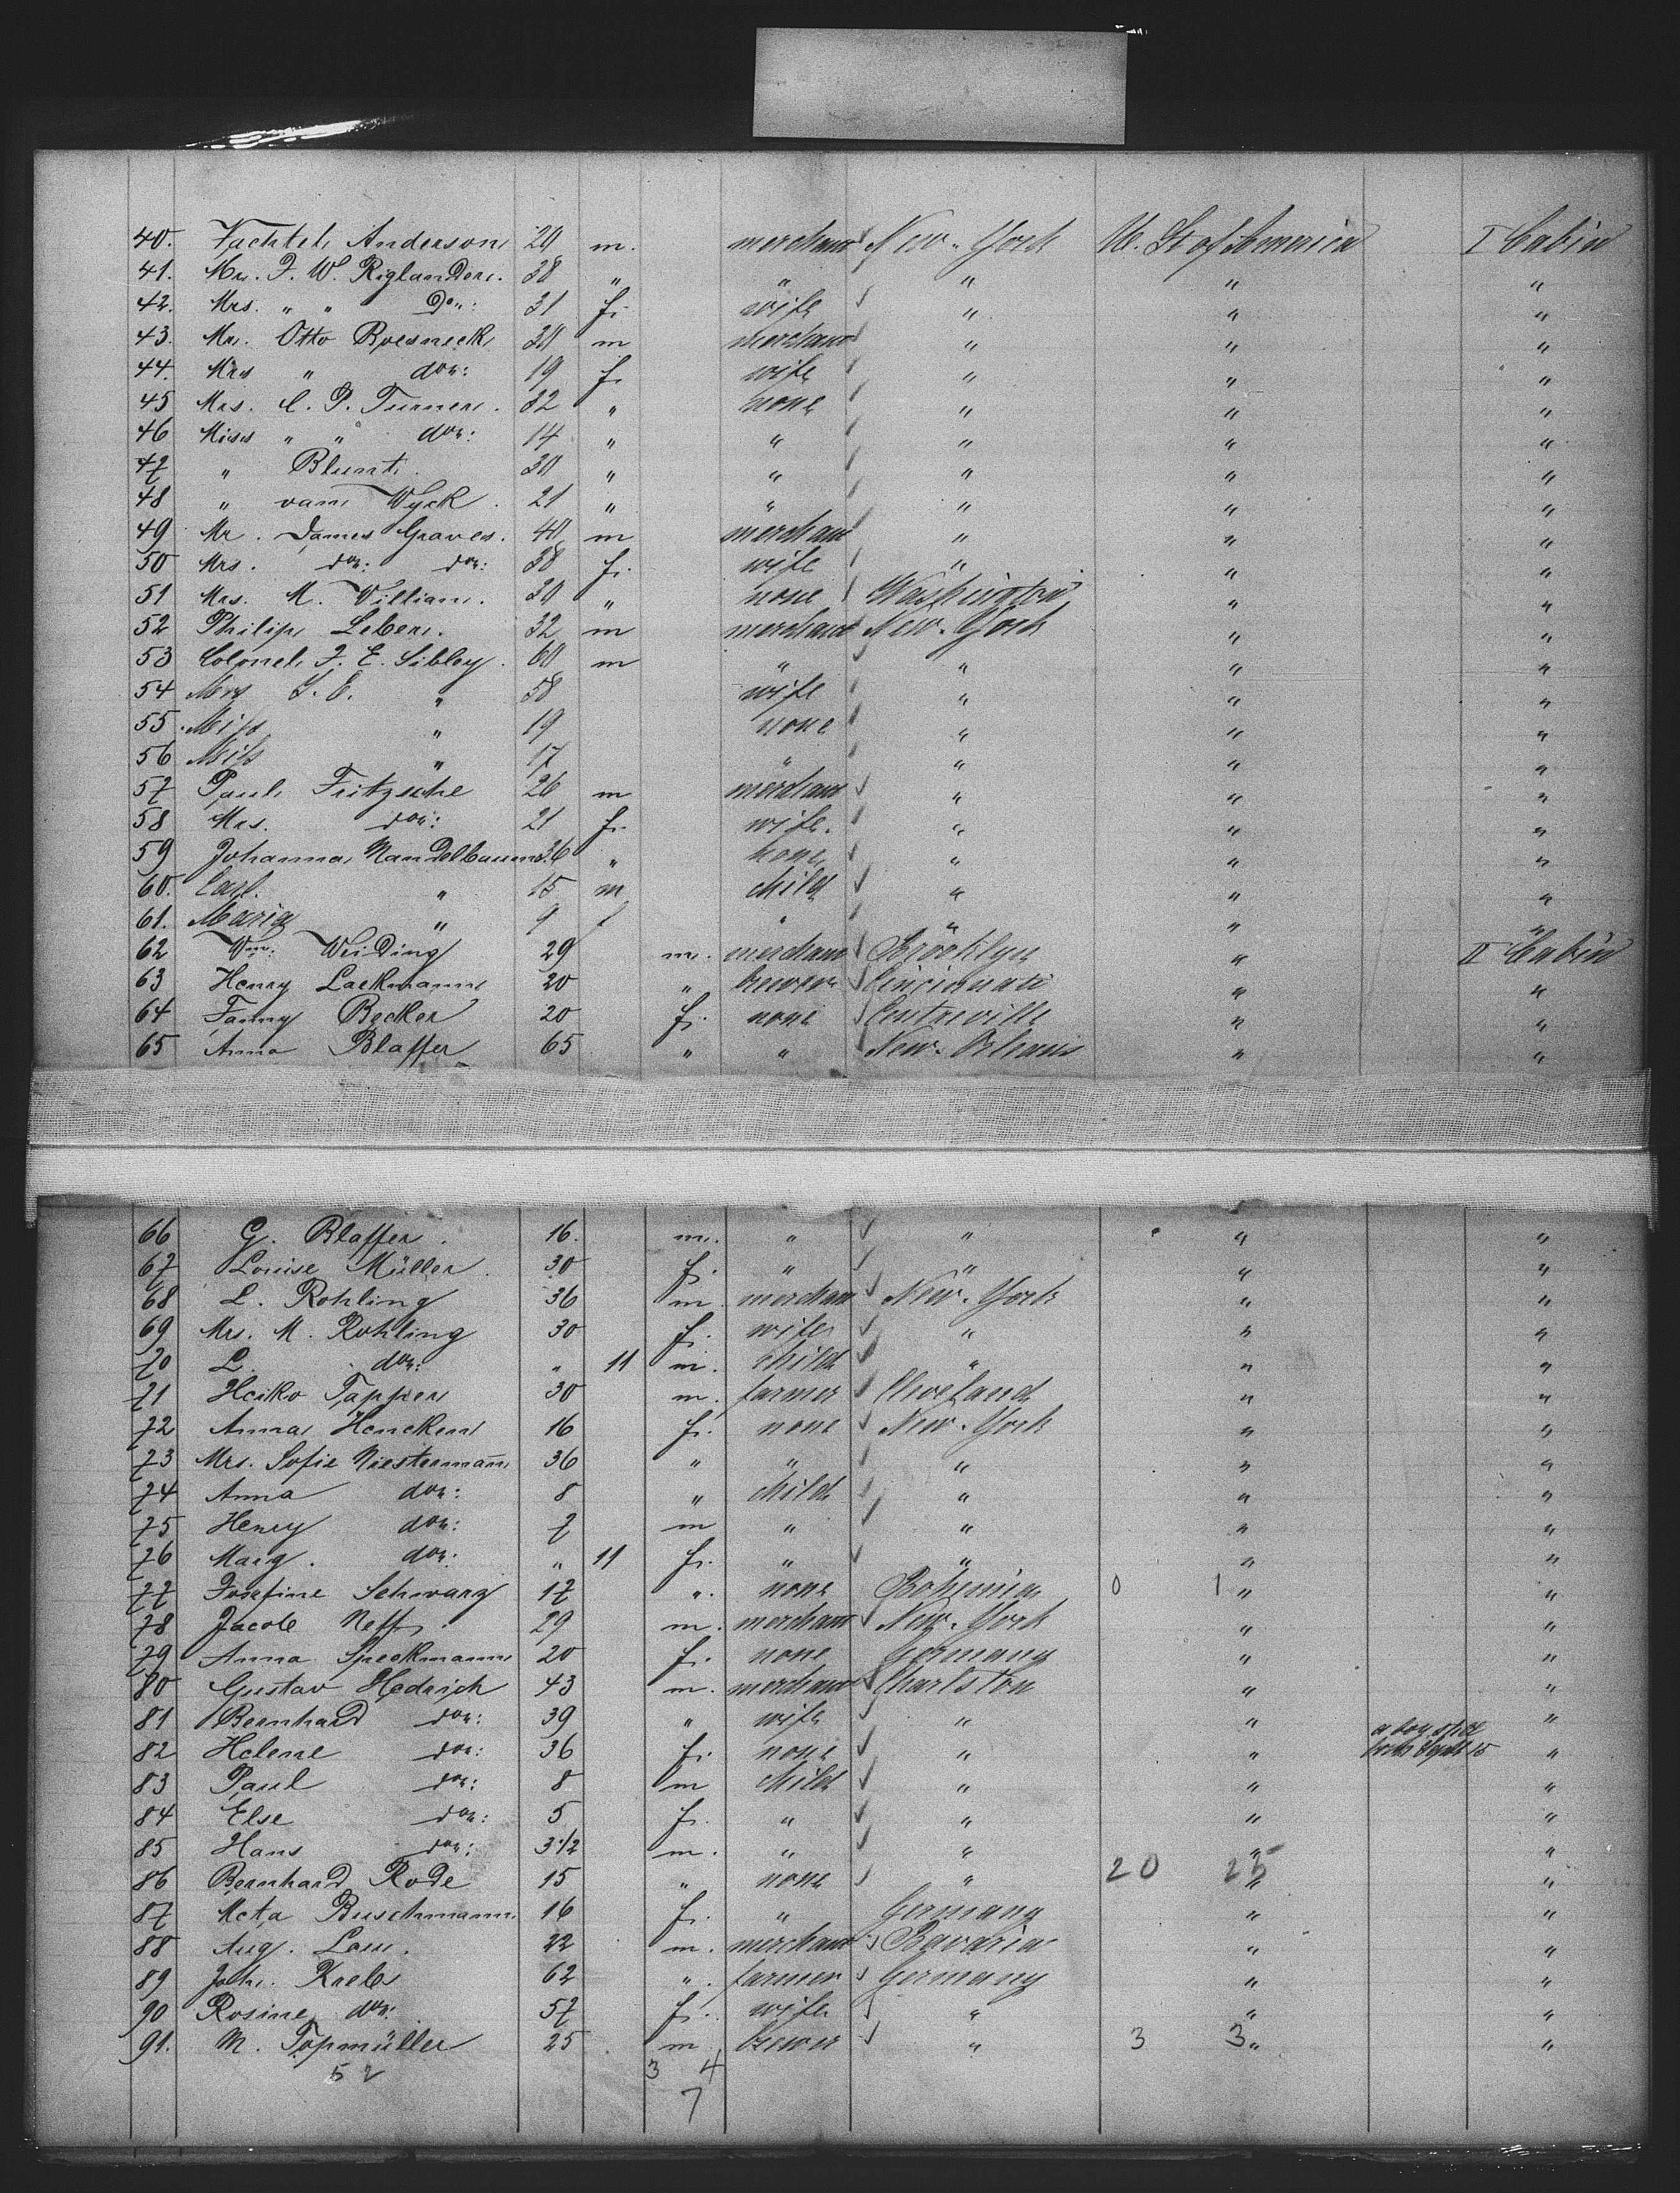 40. Anderson 29 m. merchant New-York U. St of America I Cabin
41. Mr. F. W. Riglander. 38 " " " " "
42. Mrs. " " Do: 31 f. wife " " "
43. Mr. Otto 30 m merchant " " "
44. Mrs " do: 19 f. wife " " "
45 Mrs. C. P. Turner. 32 " none " " "
46 Miss " " do: 14 " " " " "
47 " Blunt. 30 " " " " "
48 " van Wyck. 21 " " " " "
49 Mr. James Graves. 40 m merchant " " "
50 Mrs. do: do: 38 f. wife " " "
51 Mrs. M. Willian. 30 " none Washington " "
52 Philip Leber. 32 m merchant New-York " "
53 Colonel F. E. Sibley. 60 m " " " "
54 Mrs S. E. " 58 wife " " "
55 Miss " 19 none " " "
56 Miss " 17 " " " "
57 Paul Fritzsche 26 m merchant " " "
58 Mrs. do: 21 f. wife. " " "
59 Johanna Mandelbaum 36 " none " " "
60. Carl. " 15 m child " " "
61. Maria " 9 f " " " "
62 Wm: Weiding 29 m. merchant Brooklyn " II Cabin
63 Henry Lackmann 20 " brewer Cincinnati " "
64 Fanny Becker 20 f. none Centreville " "
65 Anna Blaffer 65 " " New-Orleans " "
66 G. Blaffer. 16. m. " " " "
67 Louise Müller. 30 f. " " " "
68 L. Rohling 36 m merchant New-York " "
69 Mrs. M. Rohling 30 f. wife " " "
70 L. do: " 11 m. child " " "
71 Heiko Tapper 30 m. farmer Cleveland " "
72 Anna Hencken 16 f. none New-York " "
73 Mrs. Sofie Niestermann 36 " " " " "
74 Anna do: 8 " child " " "
75 Henry do: 7 m " " " "
76 Marg. do: " 11 f. " " " "
77 Josefine Schwarz 17 ". none Bohemia 0 1 " "
78 Jacob Neff. 29 m. merchant New-York " "
79 Anna Speckmann 20 f. none Germany " "
80 Gustav Hedrich 43 m. merchant Charlston " "
81 Bernhard do: 39 " wife " " "
82 Helene do: 36 f. none " " "
83 Paul do: 8 m child " " "
84 Else do: 5 f. " " " "
85 Hans do: 3 1/2 m. " " " "
86 Bernhard Rode 15 " none " 20 25 " "
87 Meta Buschmann. 16 f. " Germany " "
88 Aug. 22 m. merchant Bavaria " "
89 Joh. Kreb 62 ". farmer Germany " "
90 Rosine do: 57 f. wife " " "
91. M. Topmüller 25 m brewer " 3 3 " "
52 3 4
7